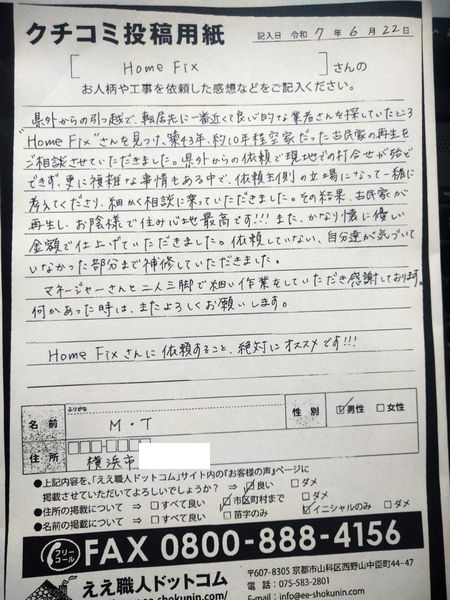 クチコミ投稿用紙
記入日 令和 7 年 6 月 22 日
[ Home Fix ] さんの
お人柄や工事を依頼した感想などをご記入ください。
県外からの引っ越で、転居先に一番近くて良心的な業者さんを探していたところ
"Home Fix"さんを見つけ、築43年、約10年程空家だった古民家の再生を
ご相談させていただきました。県外からの依頼で現地での打合せが殆ど
できず、更に複雑な事情もある中で、依頼主側の立場になって一緒に
考えてくださり、細かく相談に乗っていただきました。その結果、古民家が
再生し、お陰様で住み心地最高です!!! また、かなり懐に優しい
金額で仕上げていただきました。依頼していない、自分達が気づいて
いなかった部分まで補修していただきました。
マネージャーさんと二人三脚で細い作業をしていただき感謝しております。
何かあった時は、またよろしくお願いします。
Home Fixさんに依頼すること、絶対にオススメです!!!
ふりがな
名前 M・T 性別 ☑男性 □女性
住所 横浜市
●上記内容を、「ええ職人ドットコム」サイト内の『お客様の声』ページに
掲載させていただいてよろしいでしょうか? ⇒ ☑良い □ダメ
●住所の掲載について ⇒ □すべて良い ☑市区町村まで □ダメ
●名前の掲載について ⇒ □すべて良い □苗字のみ ☑イニシャルのみ □ダメ
フリーコール FAX 0800-888-4156
ええ職人ドットコム
〒607-8305 京都市山科区西野山中臣町44-47
電話:075-583-2801
E-mail:info@ee-shokunin.com